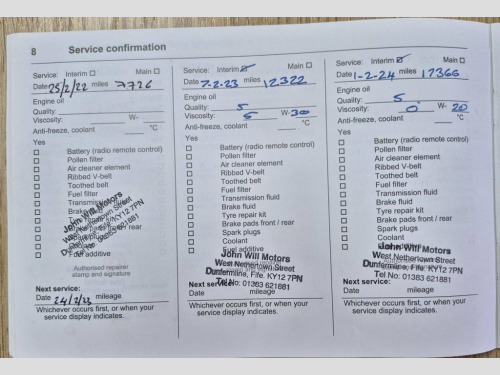 8 Service confirmation
Service: Interim Main
Date 25/2/22 miles 7726
Engine oil
Quality:
Viscosity: W-
Anti-freeze, coolant °C
Yes
Battery (radio remote control)
Pollen filter
Air cleaner element
Ribbed V-belt
Toothed belt
Fuel filter
Transmission fluid
Brake
John Will Motors
Fuel additive
Authorised repairer
stamp and signature
Next service:
Date 24/2/23 mileage
Whichever occurs first, or when your
service display indicates.
Service: Interim Main
Date 7.2.23 miles 12322
Engine oil
Quality: 5
Viscosity: 5 W-30
Anti-freeze, coolant °C
Yes
Battery (radio remote control)
Pollen filter
Air cleaner element
Ribbed V-belt
Toothed belt
Fuel filter
Transmission fluid
Brake fluid
Tyre repair kit
Brake pads front / rear
Spark plugs
Coolant
Fuel additive
John Will Motors
West Nethertown Street
Dunfermline, Fife. KY12 7PN
Tel No: 01383 621881
Next service:
Date mileage
Whichever occurs first, or when your
service display indicates.
Service: Interim Main
Date 1-2-24 miles 17366
Engine oil
Quality: 5
Viscosity: 0 W- 20
Anti-freeze, coolant °C
Yes
Battery (radio remote control)
Pollen filter
Air cleaner element
Ribbed V-belt
Toothed belt
Fuel filter
Transmission fluid
Brake fluid
Tyre repair kit
Brake pads front / rear
Spark plugs
Coolant
additive
John Will Motors
West Nethertown Street
Dunfermline, Fife. KY12 7PN
Tel No: 01383 621881
Next service:
Date mileage
Whichever occurs first, or when your
service display indicates.